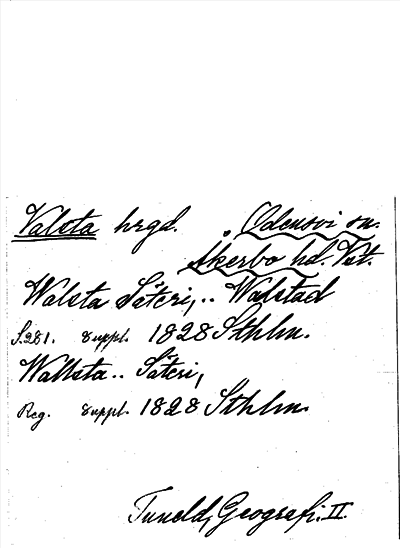 Valsta hrgd. Odensvi sn.
Åkerbo hd. Vst.
Walsta Säteri,.. Walstad
S.281. Suppl. 1828 Sthlm.
Wallsta.. Säteri,
Reg. Suppl. 1828 Sthlm.
Tuneld, Geografi. II.